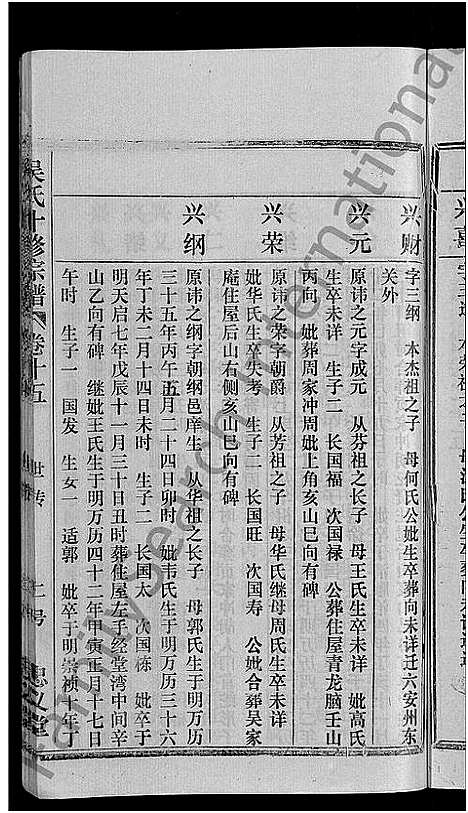 兴财
字三纲 木杰祖之子 母何氏公妣生卒葬向未详迁六安州东
关外
兴元
原讳之元字成元 从芬祖之长子 母王氏生卒未详 妣高氏
生卒未详 生子二 长国福 次国禄 公葬住屋青龙脑壬山
丙向 妣葬周家冲周妣上角亥山巳向有碑
兴荣
原讳之荣字朝爵 从芳祖之子 母华氏继母周氏生卒未详
妣华氏生卒失考 生子二 长国旺 次国寿 公妣合葬吴家
庵住屋后山右侧亥山巳向有碑
兴纲
原讳之纲字朝纲邑庠生 从华祖之长子 母郭氏生于明万历
三十五年丙午五月二十四日卯时 妣韦氏生于明万历三十六
年丁未二月十四日未时 生子二 长国太 次国栋 妣卒于
明天启七年戊辰十一月三十日丑时葬住屋左手经堂湾中间辛
山乙向有碑 继妣王氏生于明万历四十二年甲寅正月十七日
午时 生子一 国发 生女一 适郭 妣卒于明崇祯十年丁
吴氏十修宗谱 卷十五 世传 号 忠义堂
familysearch international